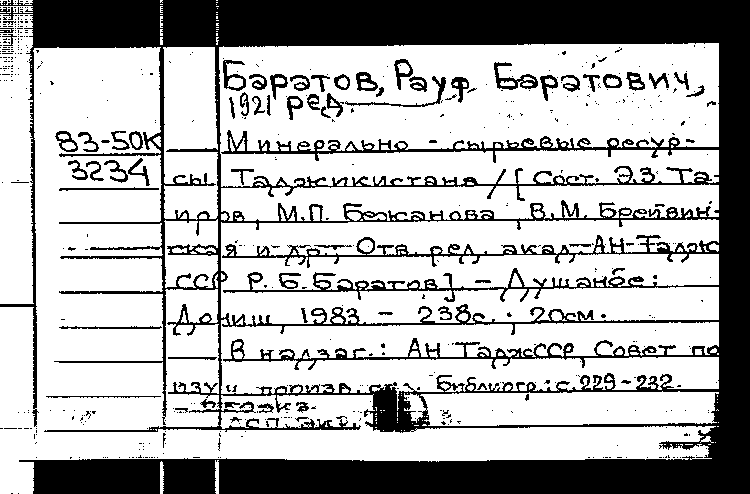 Баратов, Рауф Баратович,
1921 ред.
83-50К Минерально-сырьевые ресур-
3234 сы Таджикикистана / [Сост. Э.З. Та-
иров, М.П. Бежанова, В.М. Брейвин-
ская и др.; Отв. ред. акад. АН Тадж
ССР Р.Б. Баратов]. - Душанбе:
Дониш, 1983 - 238с.; 20см.
В надзаг.: АН ТаджССР, Совет по
изуч произв. Библиогр.: с. 229-232.